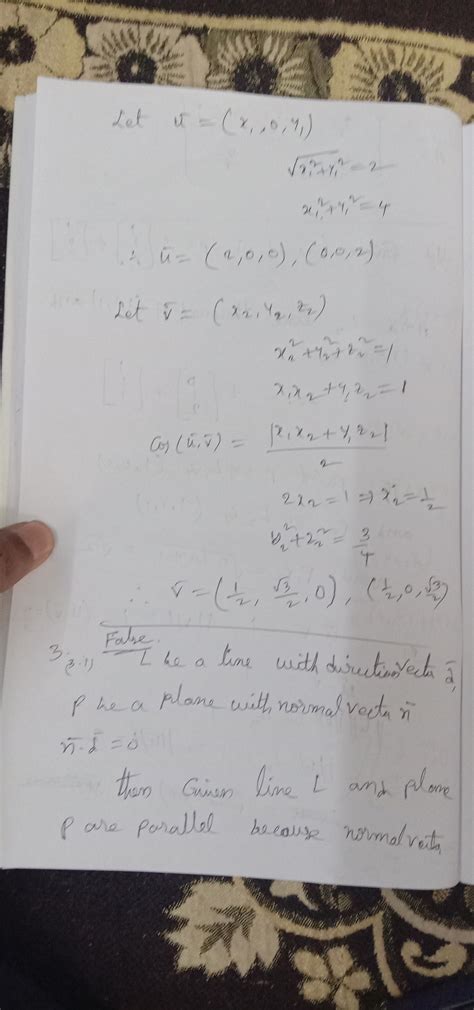 Let ū = (x₁, 0, y₁)
√(x₁²+y₁²) = 2
x₁²+y₁² = 4
∴ ū = (2,0,0), (0,0,2)
Let v̄ = (x₂, y₂, z₂)
x₂²+y₂²+z₂² = 1
x₁x₂+y₁z₂ = 1
Cos(ū,v̄) = |x₁x₂+y₁z₂| / 2
2x₂ = 1 ⇒ x₂ = 1/2
y₂²+z₂² = 3/4
∴ v̄ = (1/2, √3/2, 0), (1/2, 0, √3/2)
3. (3.1) False.
L be a line with direction vector d̄,
P be a plane with normal vector n̄
n̄·d̄ = 0
then Given line L and plane
P are parallel because normal vector